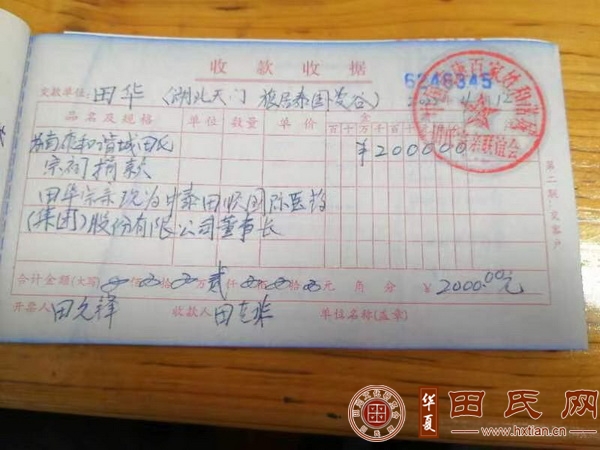 收款收据
6246345
交款单位：田华（湖北天门 旅居泰国曼谷）
品名及规格 单位 数量 单价 金
百 十 万 千 百 十
海南 和谐城田氏 ¥200000
宗祠捐款
田华宗亲现为中泰田收国际医药
（集团）股份有限公司董事长
合计金额(大写) 佰 拾 万 贰 仟 佰 拾 元 角 分 ¥2000.00元
开票人 田允锋 收款人 田 单位名称(盖章)
第二联 交客户
百家姓和谐
联谊会
华夏 田氏网
www.hxtian.cn